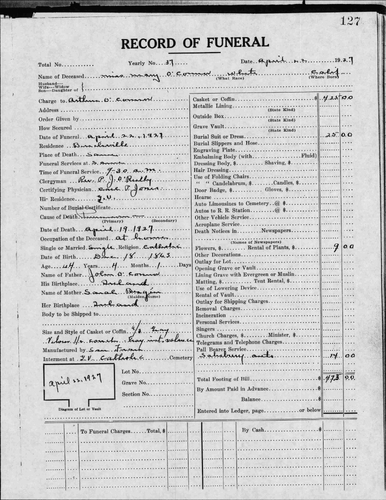 127
RECORD OF FUNERAL
Total No. Yearly No. 37 Date April 22, 1927
Name of Deceased Miss Mary O'Connor White Calif
(What Race) (Where Born)
Husband
Wife—Widow
Son—Daughter of
Charge to Arthur O'Connor
Address
Order Given by
How Secured
Date of Funeral April 22, 1927
Residence
Place of Death Same
Funeral Services at Same
Time of Funeral Service 9-30 a.m.
Clergyman Rev. P. J. O'Reilly
Certifying Physician Jones
His Residence
Number of Burial Certificate
Cause of Death
(Primary) (Secondary)
Date of Death April 19 1927
Occupation of the Deceased at home
Single or Married Single Religion Catholic
Date of Birth Dec. 18 1843
Age Years 4 Months 1 Days
Name of Father John O'Connor
His Birthplace Ireland
Name of Mother Sarah
(Maiden Name)
Her Birthplace Ireland
Body to be Shipped to
Size and Style of Casket or Coffin 6/3 Grey
Manufactured by San Fran
Interment at Catholic Cemetery
Lot No.
Grave No.
Section No.
April 22, 1927
Diagram of Lot or Vault
Casket or Coffin $ 425 00
Metallic Lining
(State Kind)
Outside Box
(State Kind)
Grave Vault
(State Kind)
Burial Suit or Dress 25 00
Burial Slippers and Hose
Engraving Plate
Embalming Body (with Fluid)
Dressing Body, $ Shaving, $
Hair Dressing
Use of Folding Chairs
" " Candelabrum, $ Candles, $
Door Badge, $ Gloves, $
Hearse
Auto Limousines to Cemetery, @ $
Autos to R. R. Station @ $
Other Vehicle Service
Aeroplane Service
Death Notices in Newspapers
(Names of Newspapers)
Flowers, $ Rental of Plants, $ 9 00
Other Decorations
Outlay for Lot
Opening Grave or Vault
Lining Grave with Evergreen or Muslin
Matting, $ Tent Rental, $
Use of Lowering Device
Rental of Vault
Outlay for Shipping Charges
Removal Charges
Incineration
Personal Services
Singers
Church Charges, $ Minister, $
Telegrams and Telephone Charges
Pall Bearer Service
14 00
Total Footing of Bill $ 473 00
By Amount Paid in Advance $
Balance $
Entered into Ledger, page or below $
To Funeral Charges Total $
By Cash $